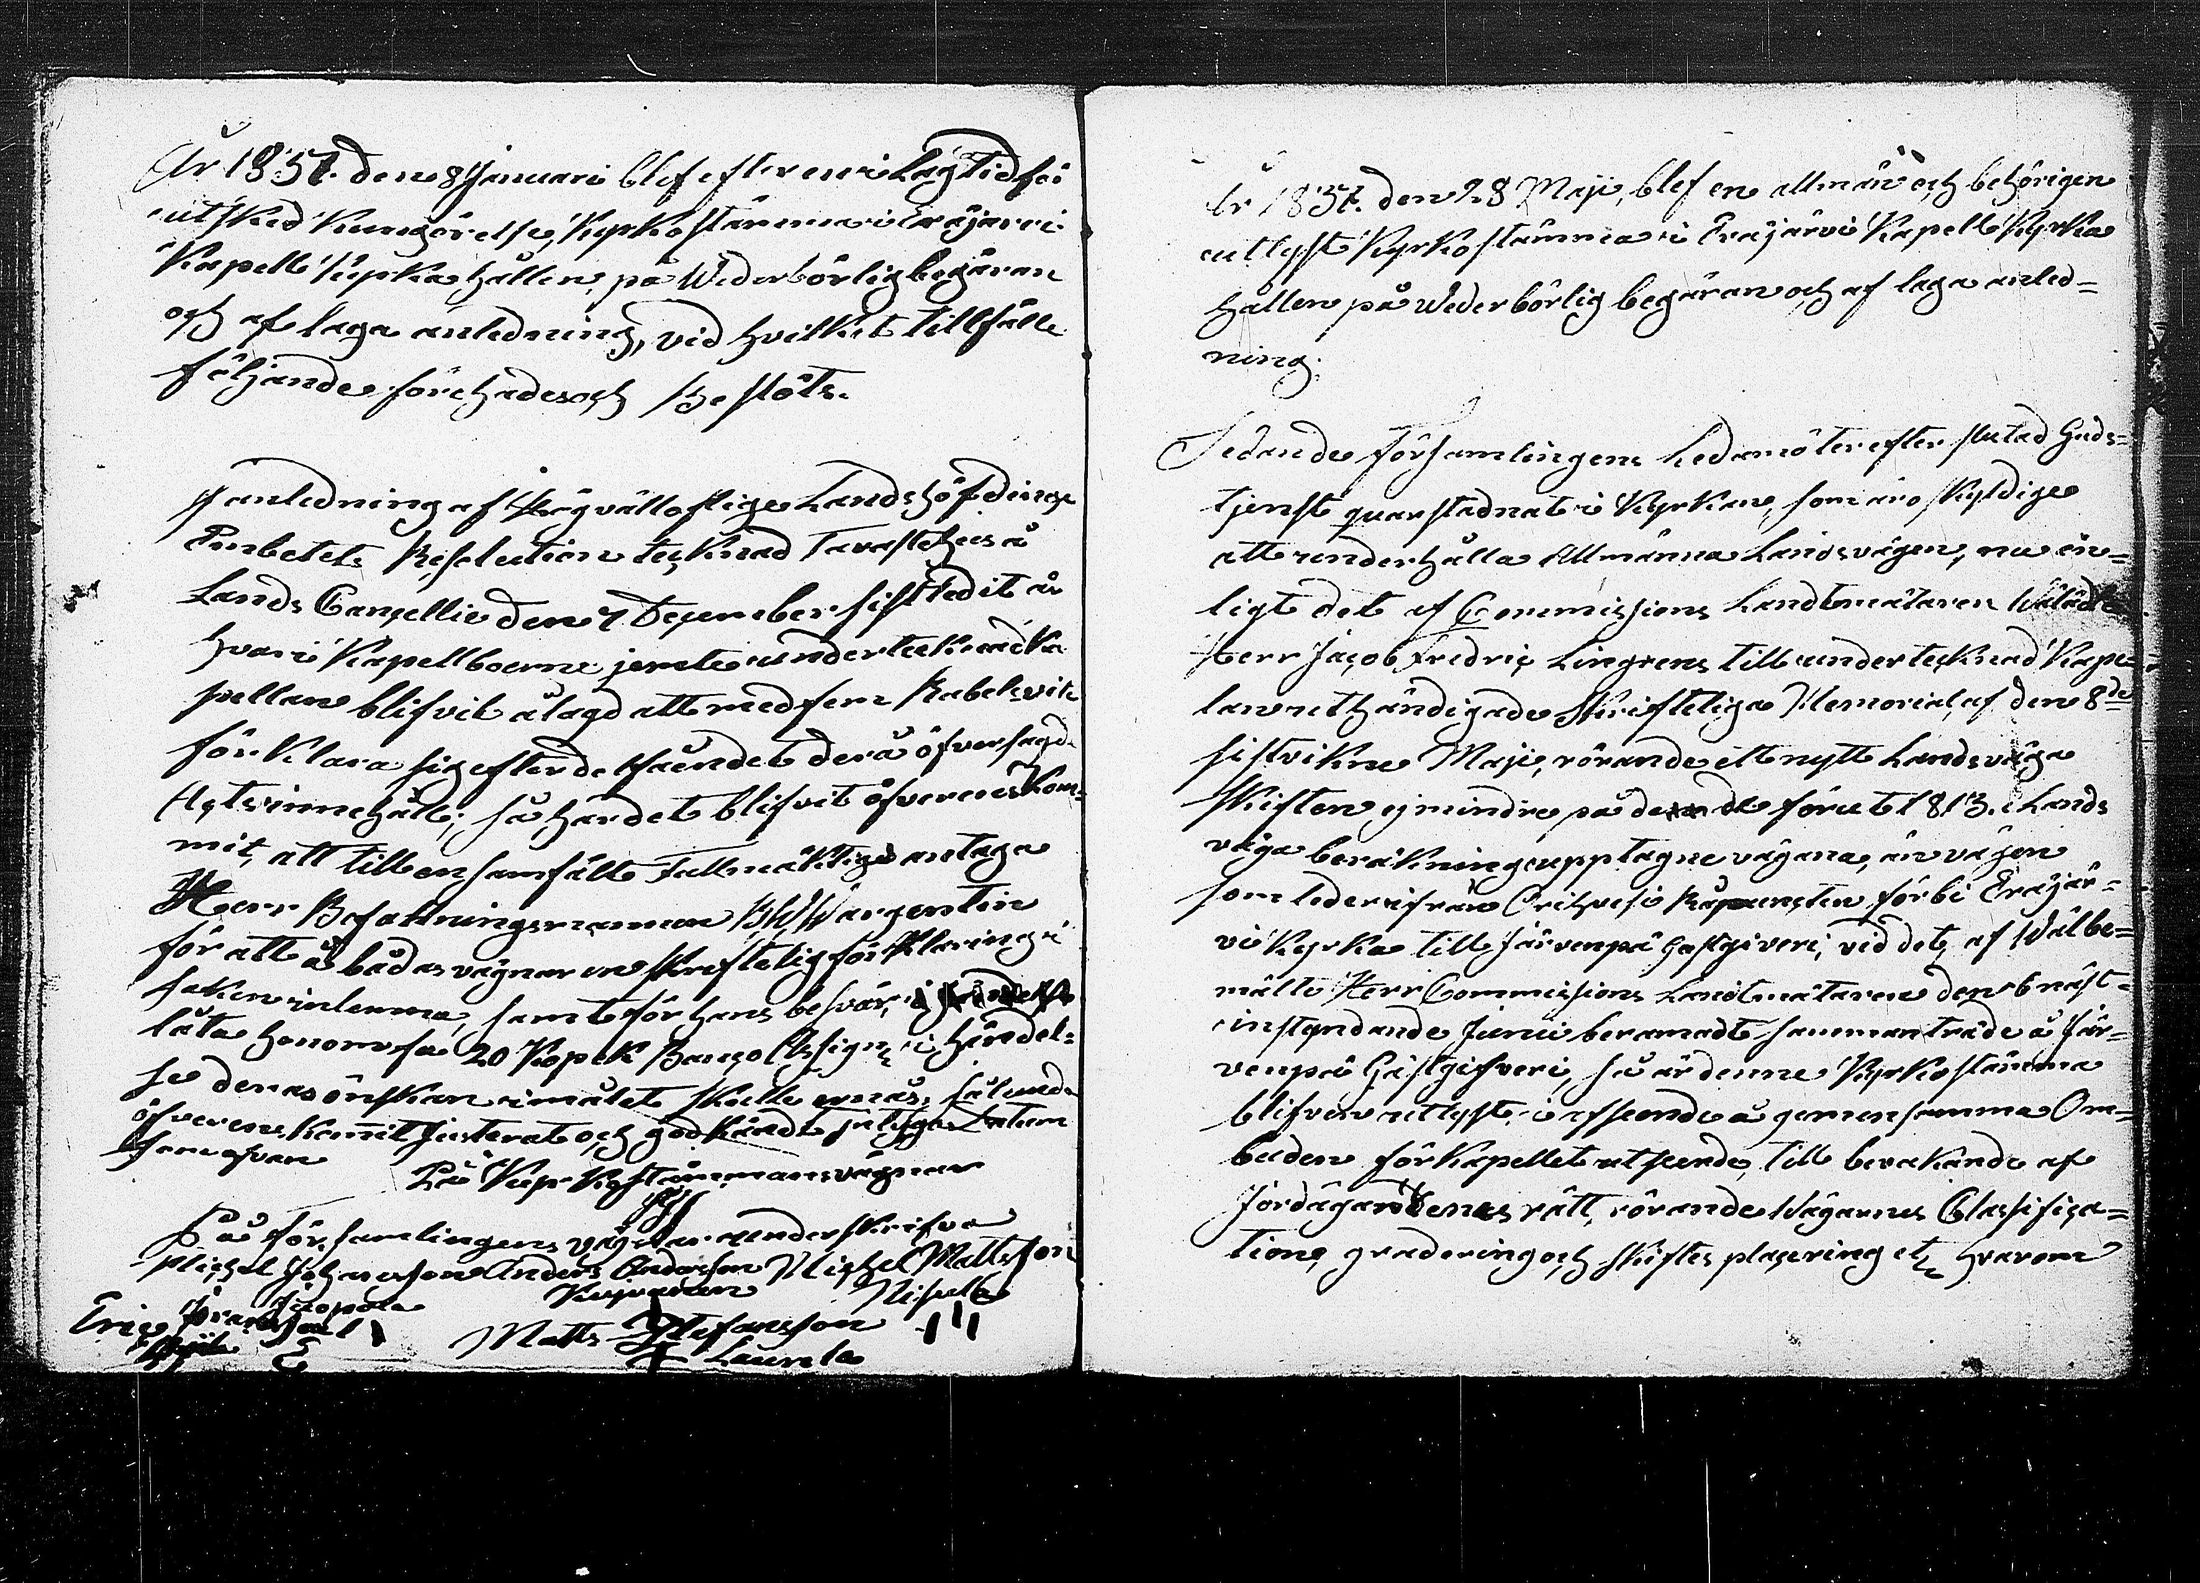 År 1837. den 8 Januarii blef efter en i Lag tid för
utsked Kungörelse, Kyrkostämma i Eräjärvi
Kapell Kyrka hållen, på Wederbörlig begäran
och af laga anledning, vid hvilket tillfälle
följande förehades och Beslöts.
I anledning af Högvälloflige Landshöfdinge
Embetets Resolution tecknad Tavastehus å
Lands Cancellie den 7 December sistledit år
hvari Kapellboerne jemte undertecknad Ka
pellan blifvit ålagd att med fem Rubels vite
förklara sig efter detsaendet derå öfversagde
Acts innehåll; så har det blifvit öfverenskom-
mit, att till en samfält Fullmäktige antaga
Herr Befattningsmannen Wargentin
för att å bådas vägnar en skreftelig förklaring i
saken inlemna, samt för hans besvär,
låta honom fa 20 Kopek Banco Assign: i händel-
se deras önskan i målet skulle ernås; sålunda
öfverenskommit Justerat och godkändt intyga Datum
som ofvan
På Kyrkostämmans vägnar
På församlingens vägnar underskrifva
Michel Johansson Anders Andersson Michel Mattsson
Juopola
Eric
Matts Stefansson
Laurela
År 1837. den 28 Maji, blef en allmän och behörigen
utlyst Kyrkostämma i Eräjärvi Kapell Kyrka
hållen på Wederbörlig begäran och af laga anled-
ning.
Sedan de församlingens Ledamöter efter slutad Guds-
tjenst quarstadnat i Kyrkan, som äro skyldige
att underhålla Allmänna Landsvägen, nu en-
ligt det af Commissions Landtmätaren Wälädle
Herr Jacob Fredric Lingrens till undertecknad Kape-
lan uthändigade Skrifteliga Memorial, af den 8de
sistvikne Maji, rörande ett nytt Landsväga
Skiften ej mindre på de förut 1813. i Lands
väga beräkningen upptagne vägana, än vägen
som leder ifrån Orihvesi förbi Eräjär-
vi Kyrka till Järvenpä Gästgiveri, vid det, af Wälbe-
mälte Herr Commissions Landtmätaren den 6 näst-
instundande Junii beramadt sammanträde å Jär-
venpä Gästgifveri, så är denne Kyrkostämma
blifven utlyst, i afseende å gemensamma Om-
buden för Kapellet utseende, till bevakande af
Jordägandenes rätt, rörande Wägarnes Classifica-
tion, gradering och skiftes placering etc hvarom